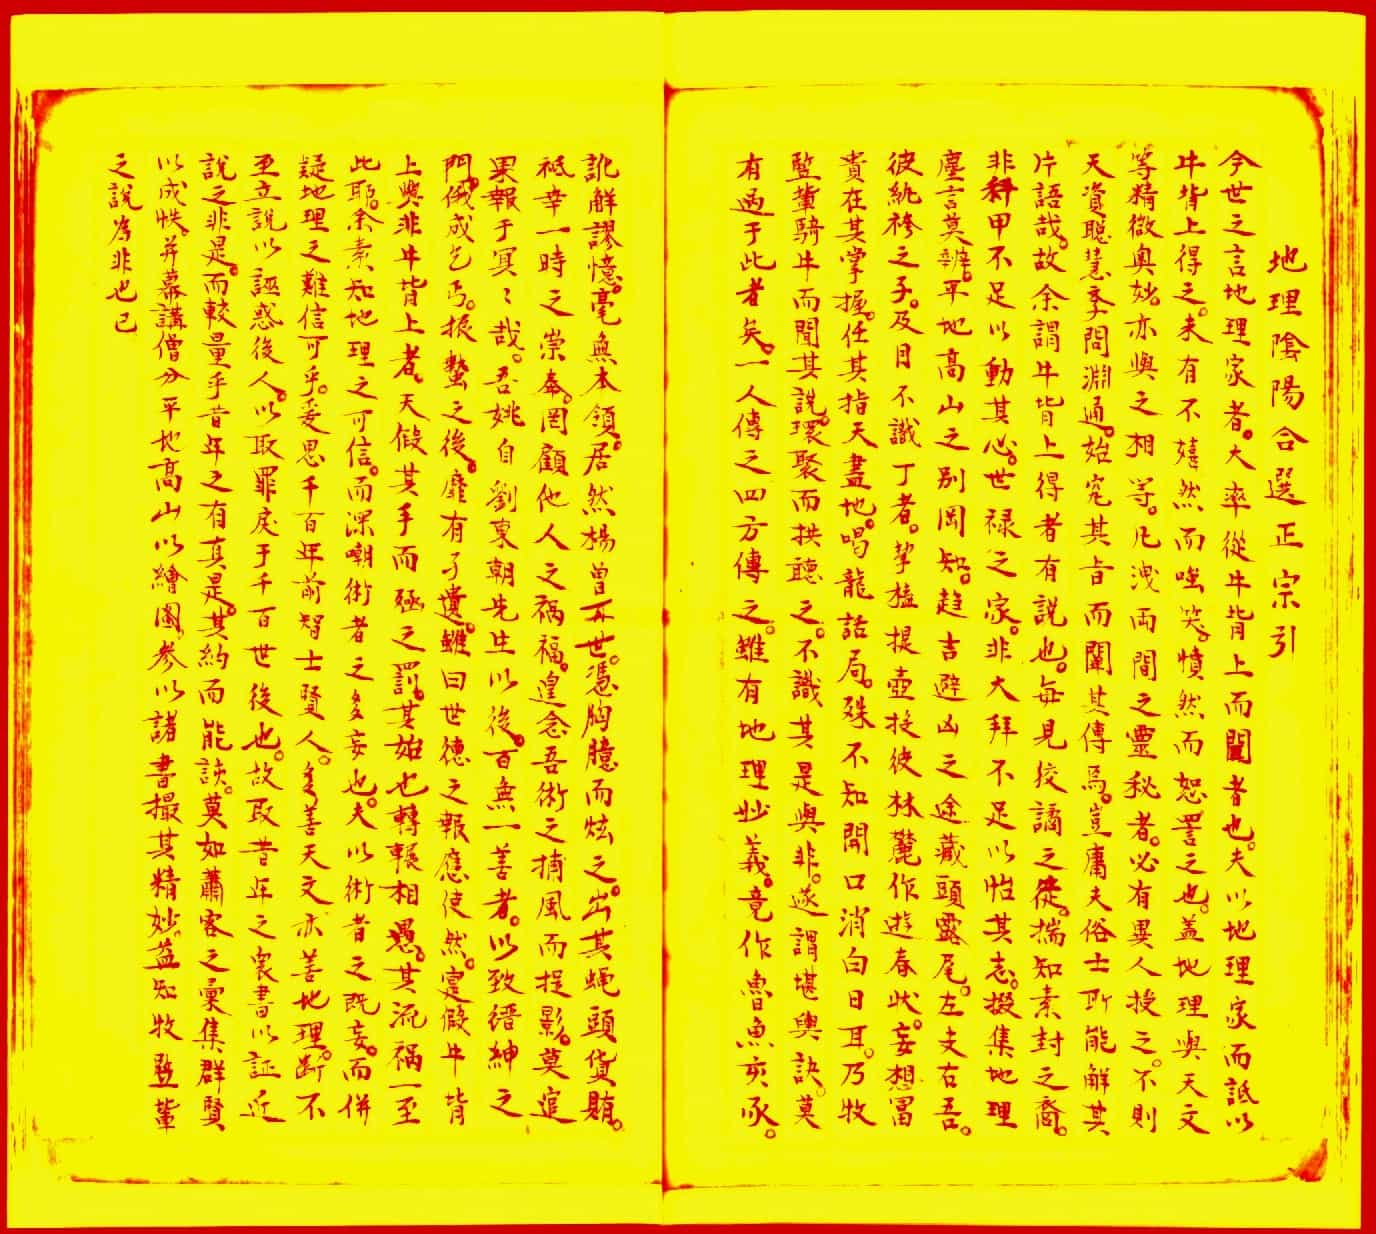 地理陰陽合選正宗引
今世之言地理家者。大率從牛背上而闖者也。夫以地理家而詆以
牛背上得之。未有不嘻然而嗤笑。憤然而怒詈之也。盖地理與天文
等精微奥妙。亦與之相等。凡洩両間之靈秘者。必有異人授之。不則
天資聰慧。季問淵通。始究其旨而闡其傳焉。豈庸夫俗士所能解其
片語哉。故余謂牛背上得者有説也。每見狡譎之徒。揣知素封之裔。
非科甲不足以動其心。世禄之家。非大拜不足以怡其志。掇集地理
塵言莫辨。平地高山之别罔知。趋吉避凶之途藏頭露尾。左支右吾。
彼紈袴之子。及目不識丁者。挈榼提壺挺彼林麓作遊春状。妄想冨
貴在其掌握。任其指天畫地。喝龍話局。殊不知開口消白日耳。乃牧
豎輩騎牛而聞其説。環聚而拱聽之。不識其是與非。遂謂堪輿訣。莫
有過于此者矣。一人傳之四方傳之。雖有地理妙義。竟作魯魚亥豕。
訛解謬憶。毫無本領。居然楊曾再世。憑胸臆而炫之。出其蝇頭貨賄。
祗幸一時之崇奉。罔顧他人之禍福。遑念吾術之捕風而捉影。莫逭
果報于冥〻哉。吾姚自劉東朝先生以後。百無一善者。以致缙紳之
門。俄成乞丐。振蟄之後。靡有孑遺。雖曰世德之報應使然。寔假牛背
上與非牛背上者。天假其手而殛之罰。其始也轉輾相愚。其流禍一至
此耶。余素知地理之可信。而深嘲術者之多妄也。夫以術者之既妄。而併
疑地理之難信可乎。爰思千百年前智士賢人。多善天文亦善地理。断不
至立説以誣惑後人。以取罪戾于千百世後也。故取昔年之衷書以証近
説之非是。而較量乎昔年之有真是。其約而能該。莫如蕭客之彚集群賢
以成帙。并幕講僧分平地高山以繪圖。參以諸書撮其精妙益知牧豎輩
之説為非也已